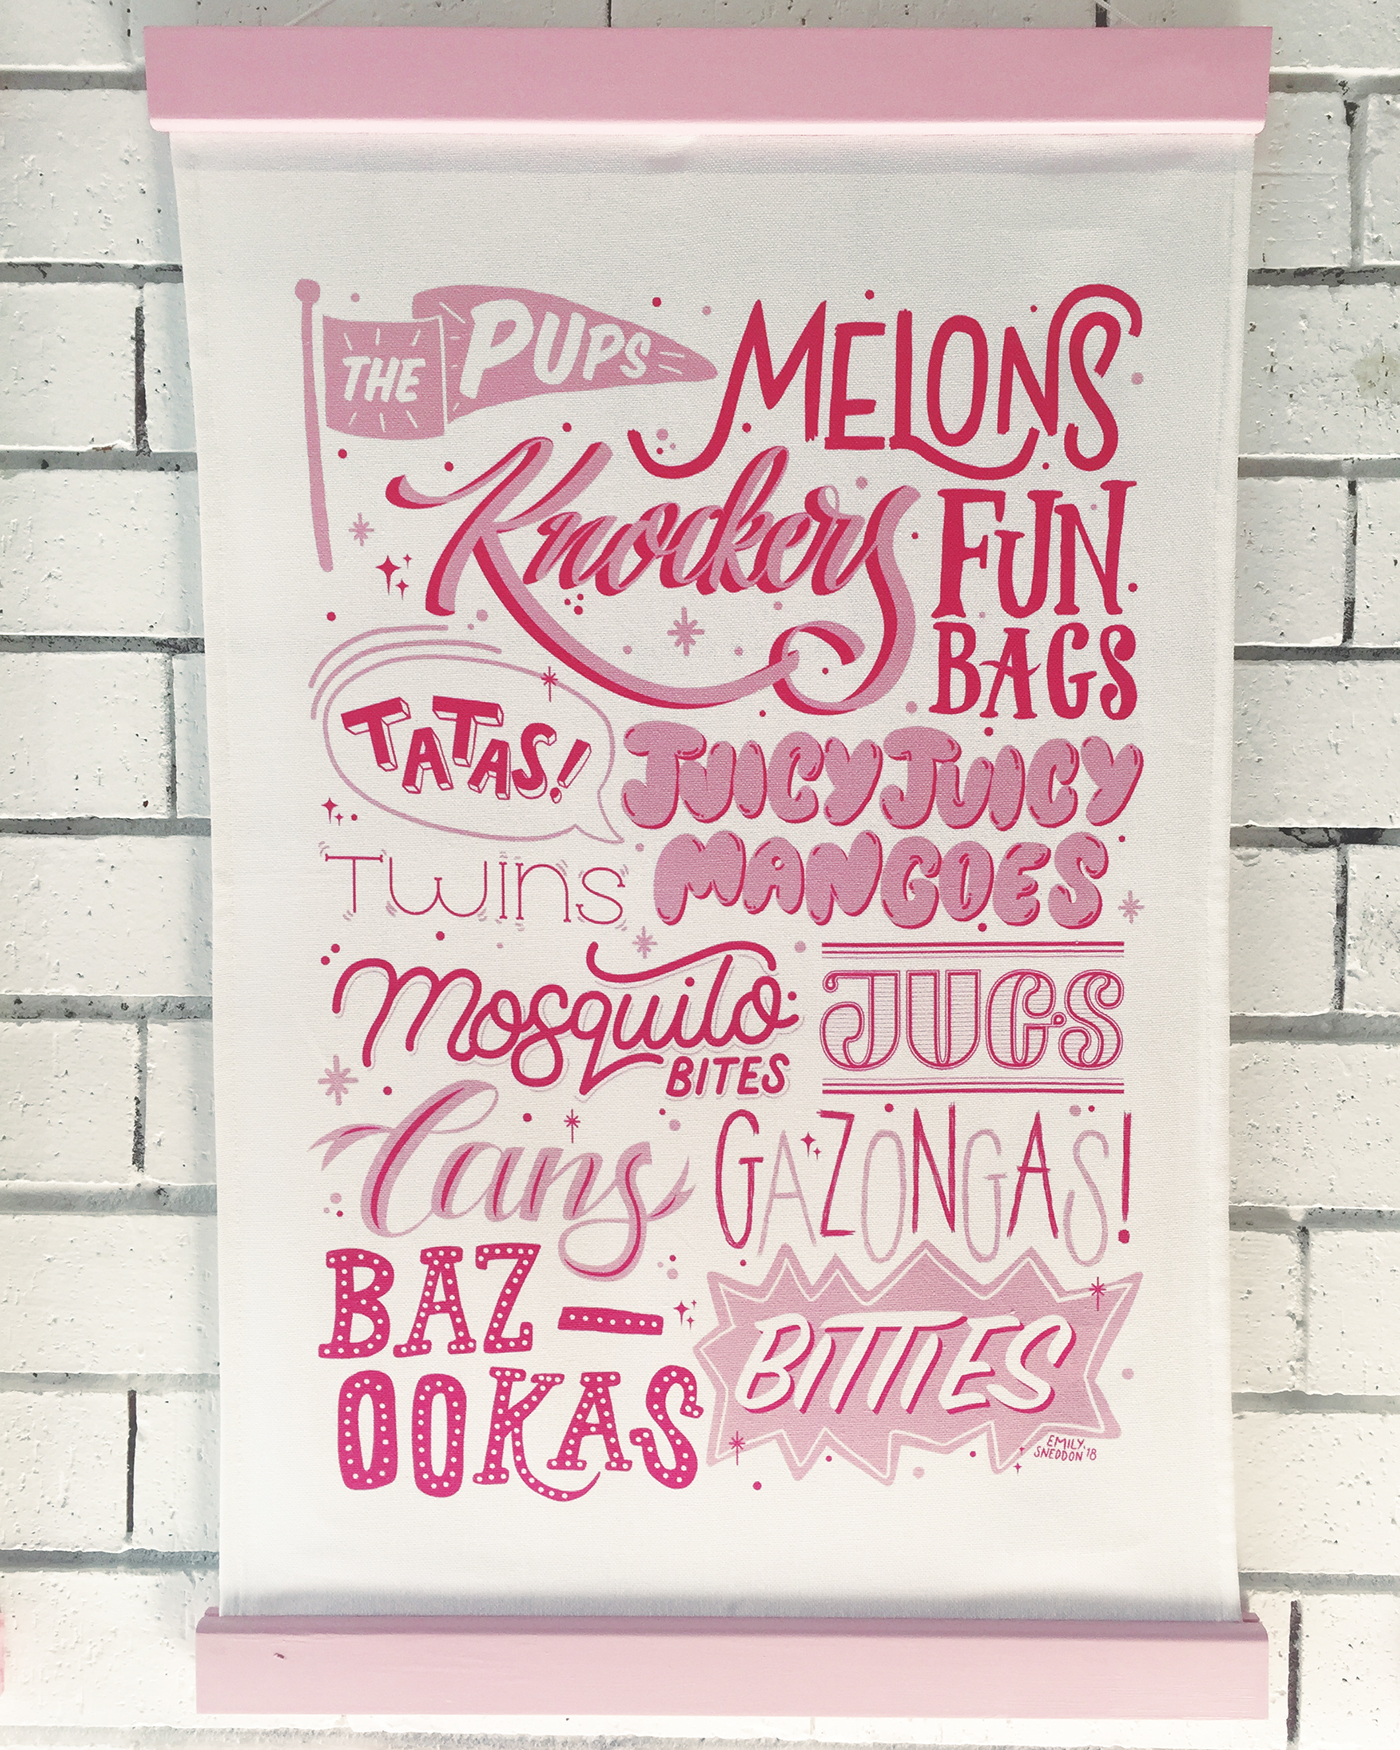 THE PUPS
MELONS
Knockers
FUN
BAGS
TATAS!
JUICY JUICY
MANGOES
TWINS
Mosquito
BITES
JUGS
Cans
GAZONGAS!
BAZ-
OOKAS
BITTIES
EMILY
SNEDDON '18